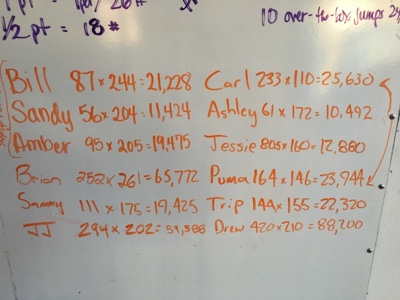 1/2 pt = 18#
10 over-the-box jumps
Bill 87 × 244 = 21,228 Carl 233 × 110 = 25,630
Sandy 56 × 204 = 11,424 Ashley 61 × 172 = 10,492
Amber 95 × 205 = 19,475 Jessie 805 × 160 = 12,880
Brian 252 × 261 = 65,772 Puma 164 × 146 = 23,944
Sammy 111 × 175 = 19,425 Trip 144 × 155 = 22,320
JJ 294 × 202 = 59,388 Drew 420 × 210 = 88,200